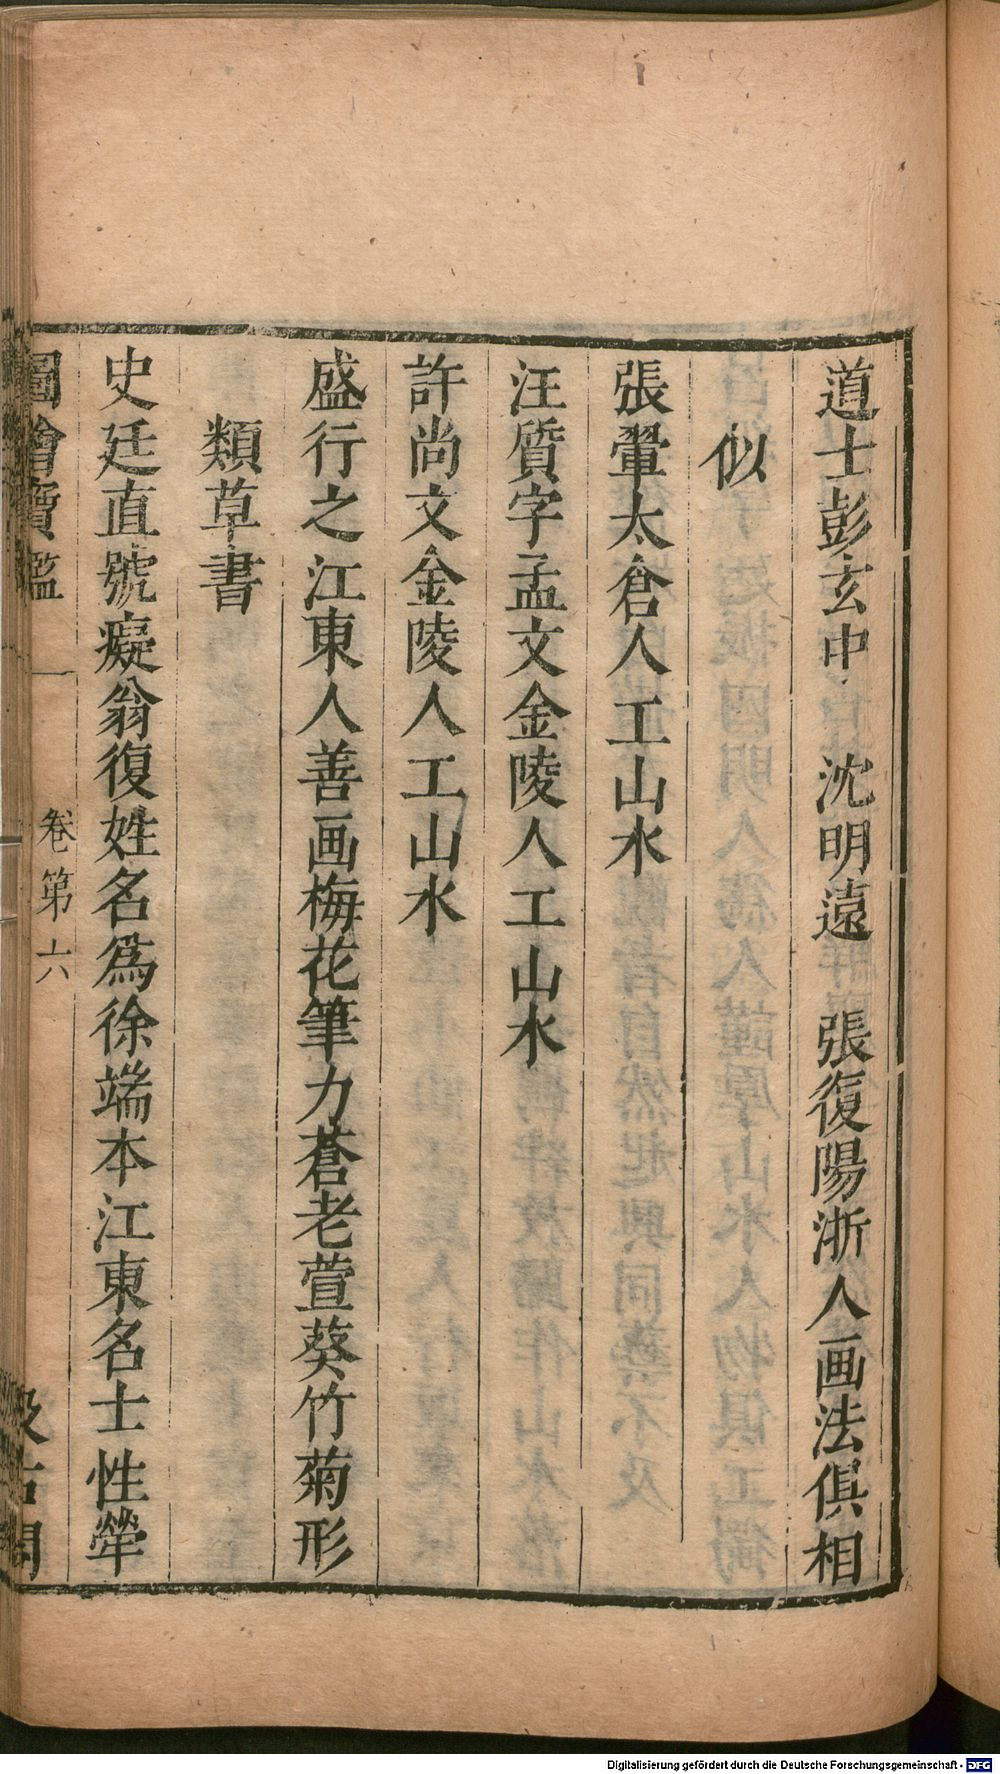 道士彭玄中 沈明遠 張復陽浙人画法俱相
似
張翬太倉人工山水
汪質字孟文金陵人工山水
許尚文金陵人工山水
盛行之江東人善画梅花筆力蒼老萱葵竹菊形
類草書
史廷直號癡翁復姓名爲徐端本江東名士性犖
圖繪寶鑑 卷第六 汲古閣
Digitalisierung gefördert durch die Deutsche Forschungsgemeinschaft - DFG